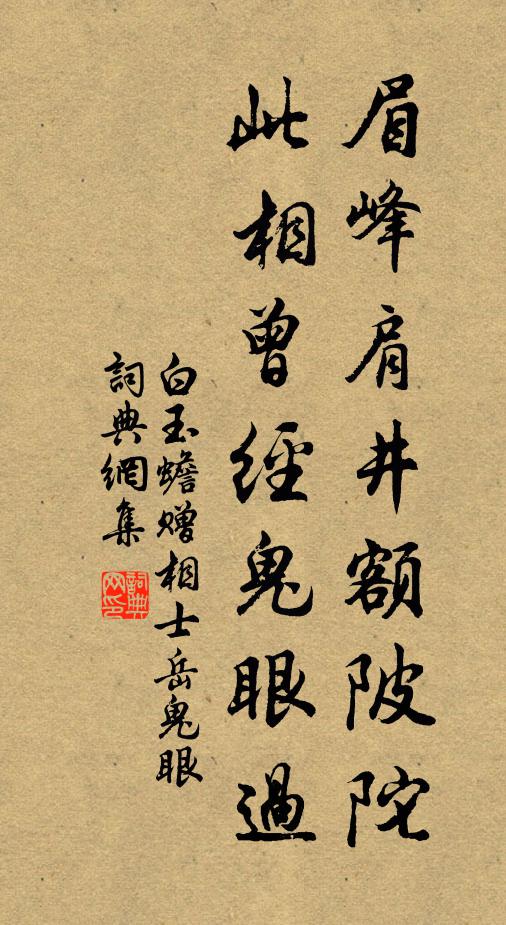 眉峰肩井額陂陀
此相曾經鬼眼過
白玉蟾贈相士岳鬼眼
詞典網集
詞典网印